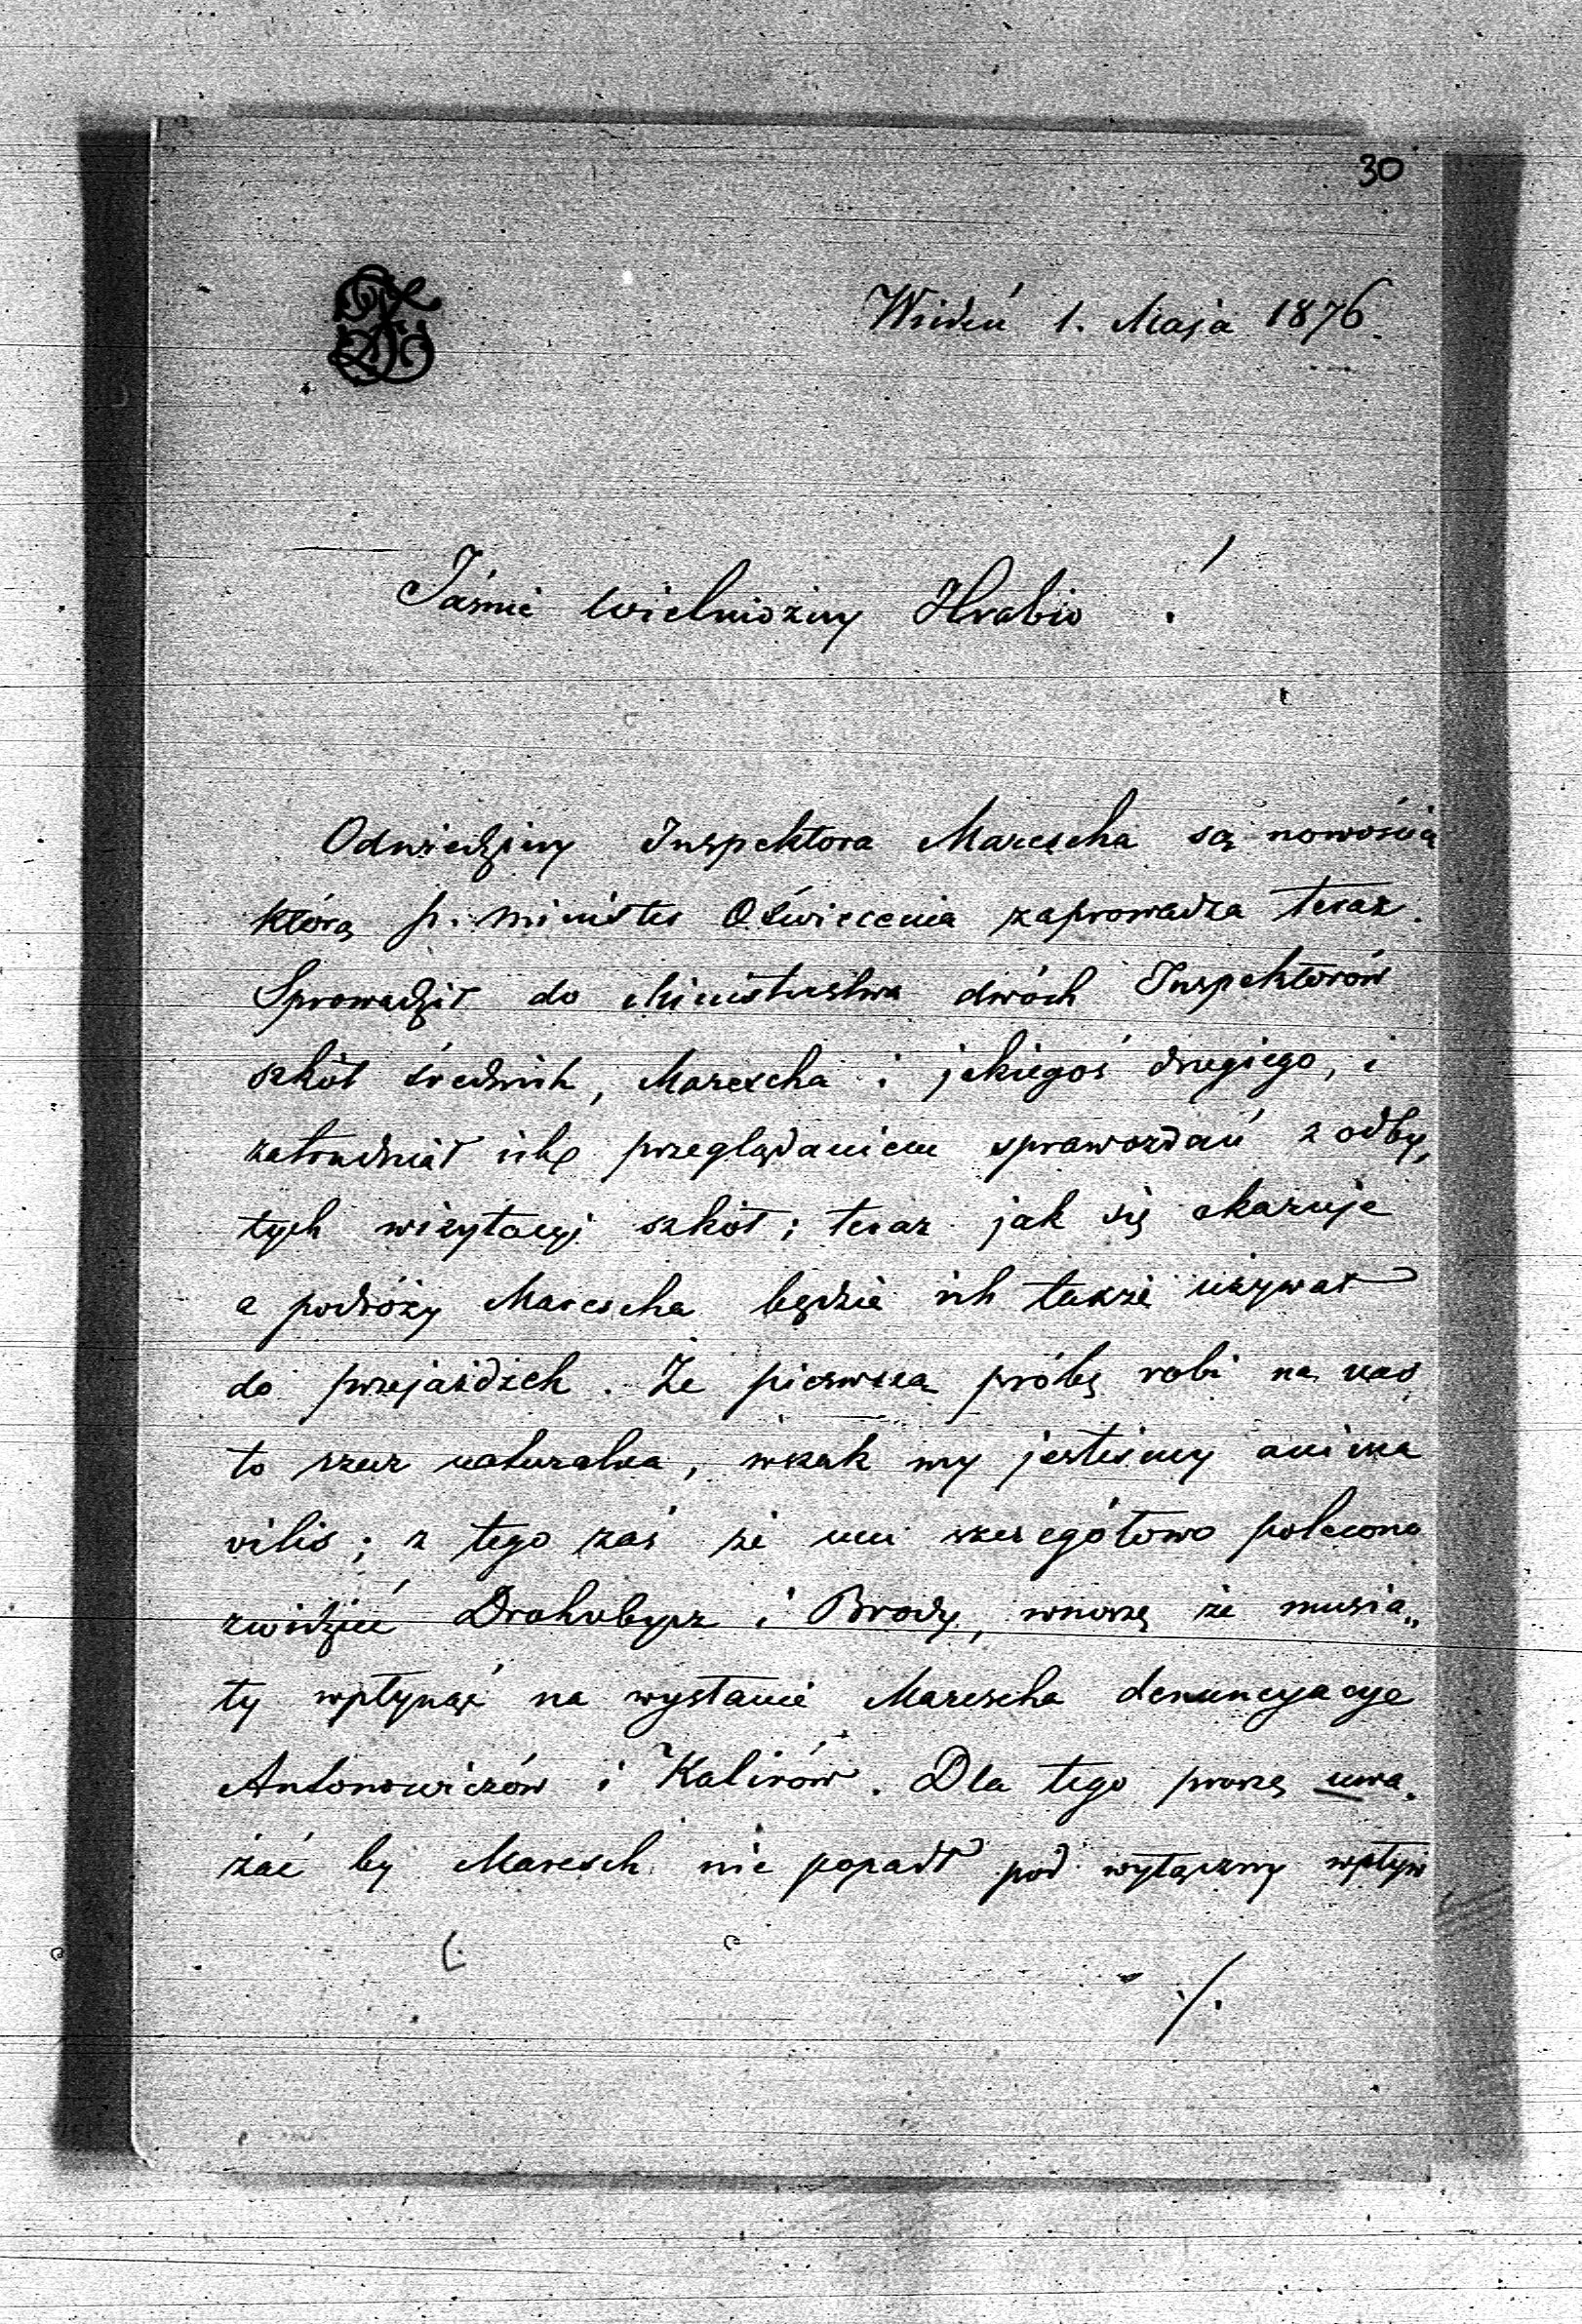 30
Wiedeń 1. Maja 1876.
Jaśnie Wielmożny Hrabio !
Odwiedziny Inspektora Marescha są nowością
którą p. minister Oświecenia zaprowadza teraz.
Sprowadził do Ministerstwa dwóch Inspektorów
szkół średnich, Marescha i jakiegoś drugiego, i
zatrudniał ich przeglądaniem sprawozdań z odby„
tych wizytacyj szkół; teraz jak się okazuje
z podróży Marescha będzie ich także używał
do przejażdżek. Że pierwszą próbę robi na nas
to rzecz naturalna, wszak my jesteśmy anima
vilis; z tego zaś że mu szczegółowo polecono
zwidzieć Drohobycz i Brody, wnoszę że musia„
ły wpłynąć na wysłanie Marescha denuncyacye
Antonowiczów i Kalirów. Dla tego proszę uwa„
żać by Maresch nie popadł pod wyłączny wpływ
./.